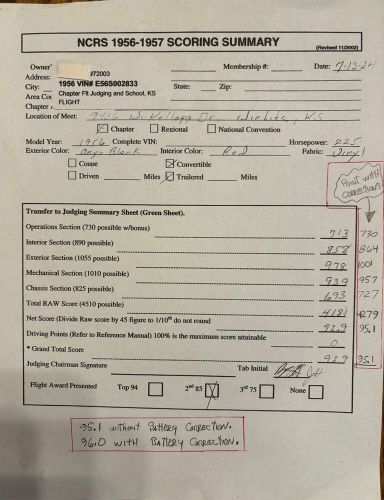 NCRS 1956-1957 SCORING SUMMARY
(Revised 11/2002)
Owner' Membership #: Date: 7-13-24
972003
Address:
1956 VIN# E56S002833
City: State: Zip:
Chapter Flt Judging and School, KS
Area Co
FLIGHT
Chapter
Location of Meet: Wichita, KS
Chapter Regional National Convention
Model Year: 1956 Complete VIN: Horsepower: 225
Exterior Color: Onyx Black Interior Color: Red Fabric: Vinyl
Coupe Convertible
Driven Miles Trailered Miles
Point with corrections
Transfer to Judging Summary Sheet (Green Sheet).
Operations Section (730 possible w/bonus) 713 730
Interior Section (890 possible) 858 864
Exterior Section (1055 possible) 978 1001
Mechanical Section (1010 possible) 939 957
Chassis Section (825 possible) 693 727
Total RAW Score (4510 possible) 4181 4279
Net Score (Divide Raw score by 45 figure to 1/10th do not round 92.9 95.1
Driving Points (Refer to Reference Manual) 100% is the maximum score attainable 0
* Grand Total Score 92.9 95.1
Judging Chairman Signature Tab Initial
Flight Award Presented Top 94 2nd 85 3rd 75 None
95.1 without Battery Correction.
96.0 with Battery Correction.